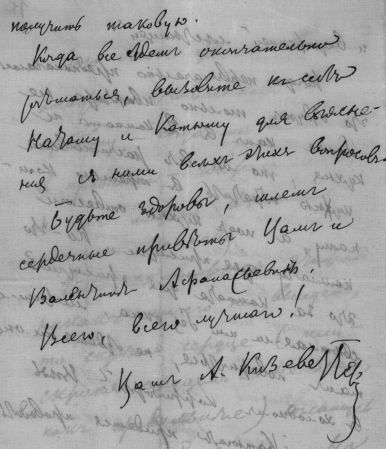 получить таковую.
Когда все будет окончательно
решаться, вызовите к себе
и для выясне-
ния с нами всехъ этихъ вопросовъ.
Будьте здоровы, шлемъ
сердечные приветы Вамъ и
Валентине Афанасьевне.
Всего, всего лучшего!
Вашъ А. Кизеветтер